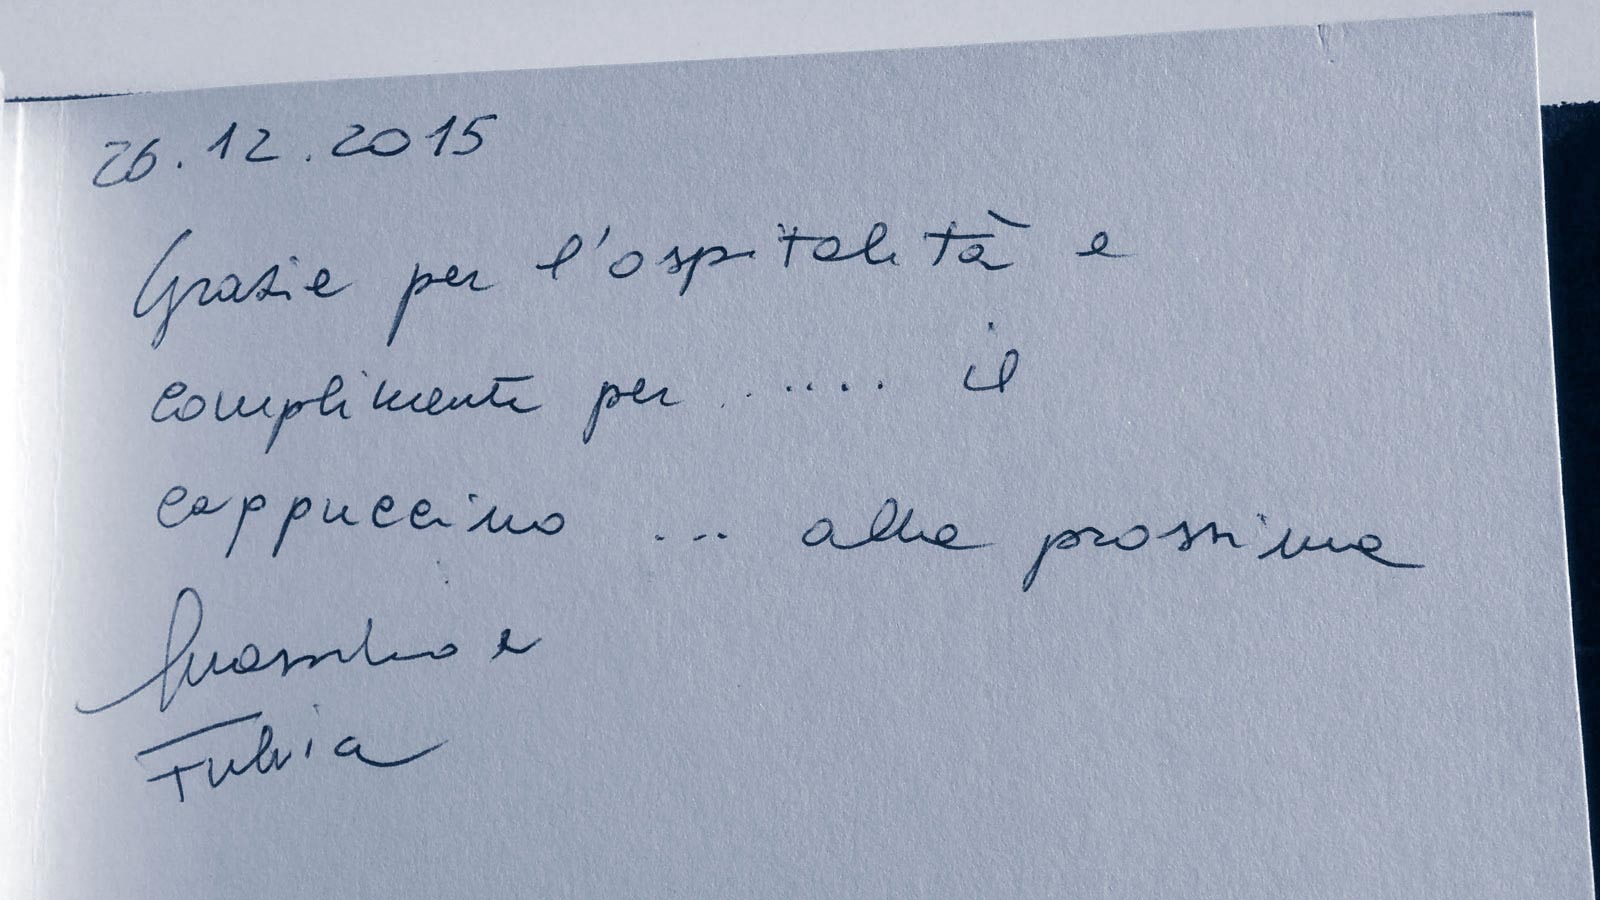 26.12.2015
Grazie per l'ospitalità e
complimenti per ...... il
cappuccino ... alla prossima
Massimo e
Fulvia